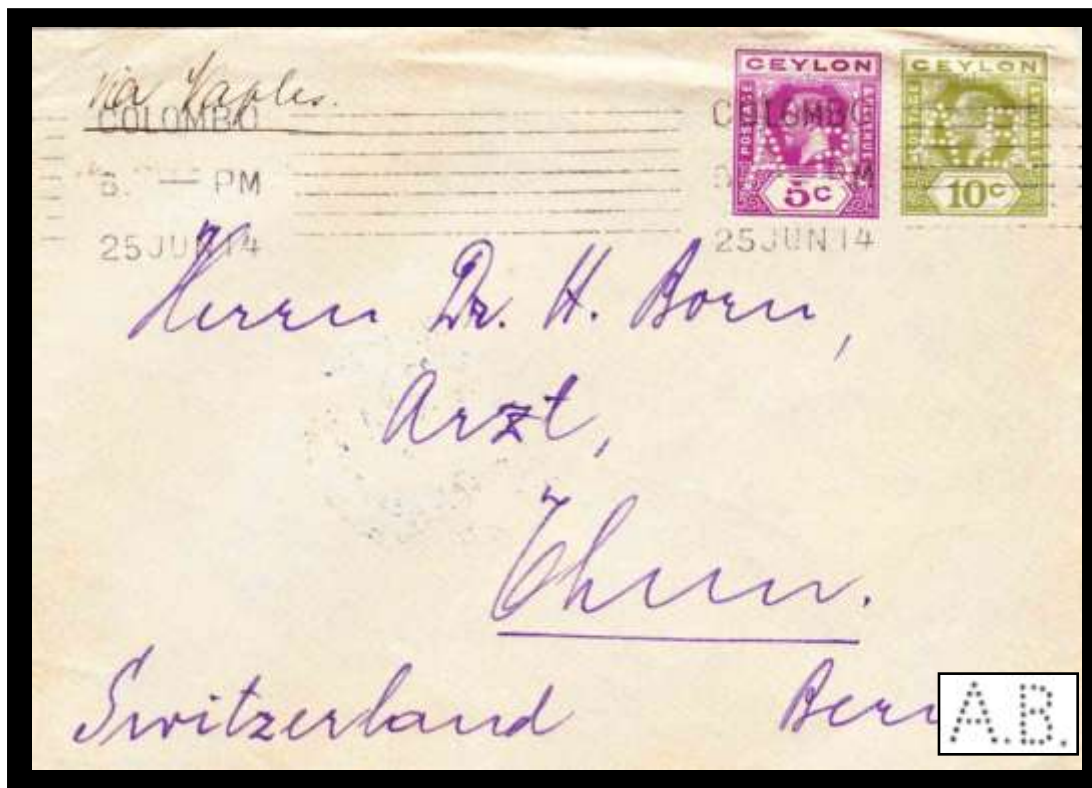 via Naples.
COLOMBO
PM
25JUN14
CEYLON
POSTAGE & REVENUE
5c
CEYLON
10c
COLOMBO
PM
25JUN14
Herrn Dr. H. Born,
Arzt,
Thun.
Switzerland
A.B.